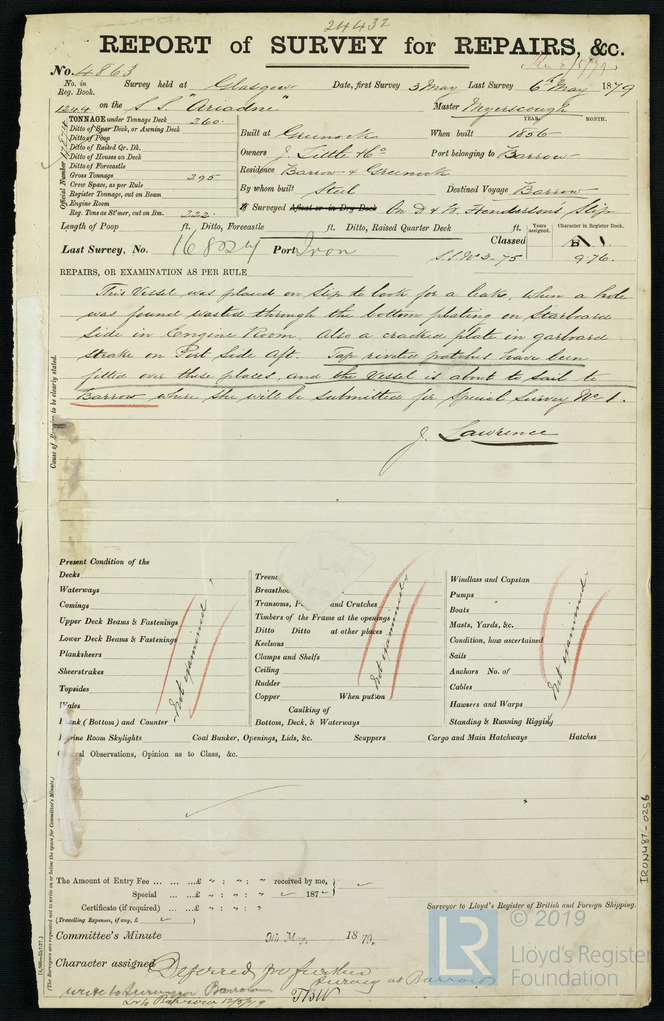 24432
REPORT of SURVEY for REPAIRS, &c.
No. 4863
No. in Reg. Book. Survey held at Glasgow Date, first Survey 3 May Last Survey 6th May 1879
1244 on the S.S. "Ariadne" Master Myerscough
TONNAGE under Tonnage Deck 260.
Ditto of Spar Deck, or Awning Deck
Ditto of Poop
Ditto of Raised Qr. Dk.
Ditto of Houses on Deck
Ditto of Forecastle
Gross Tonnage 295
Crew Space, as per Rule
Register Tonnage, cut on Beam
Engine Room
Reg. Tons as St'mer, cut on Bm. 222
Official Number
Built at Greenock When built 1856 YEAR. MONTH.
Owners J Little & Co Port belonging to Barrow
Residence Barrow & Greenock
By whom built Steel Destined Voyage Barrow
If Surveyed Afloat or in Dry Dock On D & W. Henderson's Slip
Length of Poop ft. Ditto, Forecastle ft. Ditto, Raised Quarter Deck ft.
Last Survey, No. Port Iron Classed
Years assigned. Character in Register Book.
S.S. No 2-75 9.76.
REPAIRS, OR EXAMINATION AS PER RULE
This Vessel was placed on Slip to look for a leak, when a hole
was found wasted through the bottom plating on Starboard
side in Engine Room. Also a cracked plate in garboard
Strake on Port Side Aft. Tap rivetted patches have been
fitted over these places, and the Vessel is about to sail to
Barrow where she will be submitted for Special Survey No 1.
J. Lawrence
Cause of Repairs to be clearly stated.
Present Condition of the
Decks
Waterways
Comings
Upper Deck Beams & Fastenings
Lower Deck Beams & Fastenings
Planksheers
Sheerstrakes
Topsides
Wales
Plank (Bottom) and Counter
Not examined
Treen
Breasthoo
Transoms, P and Crutches
Timbers of the Frame at the openings
Ditto Ditto at other places
Keelsons
Clamps and Shelfs
Ceiling
Rudder
Copper When put on
Caulking of
Bottom, Deck, & Waterways
Not examined
Windlass and Capstan
Pumps
Boats
Masts, Yards, &c.
Condition, how ascertained
Sails
Anchors No. of
Cables
Hawsers and Warps
Standing & Running Rigging
Not examined
Engine Room Skylights Coal Bunker, Openings, Lids, &c. Scuppers Cargo and Main Hatchways Hatches
General Observations, Opinion as to Class, &c.
IRON487-0256
The Amount of Entry Fee ... ... ...£ " : " : " received by me,
Special ... ...£ " : " : " 187
Certificate (if required) ... ...£ " : " : "
(Travelling Expenses, if any, £
Surveyor to Lloyd's Register of British and Foreign Shipping.
Committee's Minute 9th May, 1879.
Character assigned Deferred for further
survey at Barrow
write to Surveyor Barrow
(The Surveyors are requested not to write on or below the space for Committee's Minute.)
LR
© 2019
Lloyd's Register
Foundation